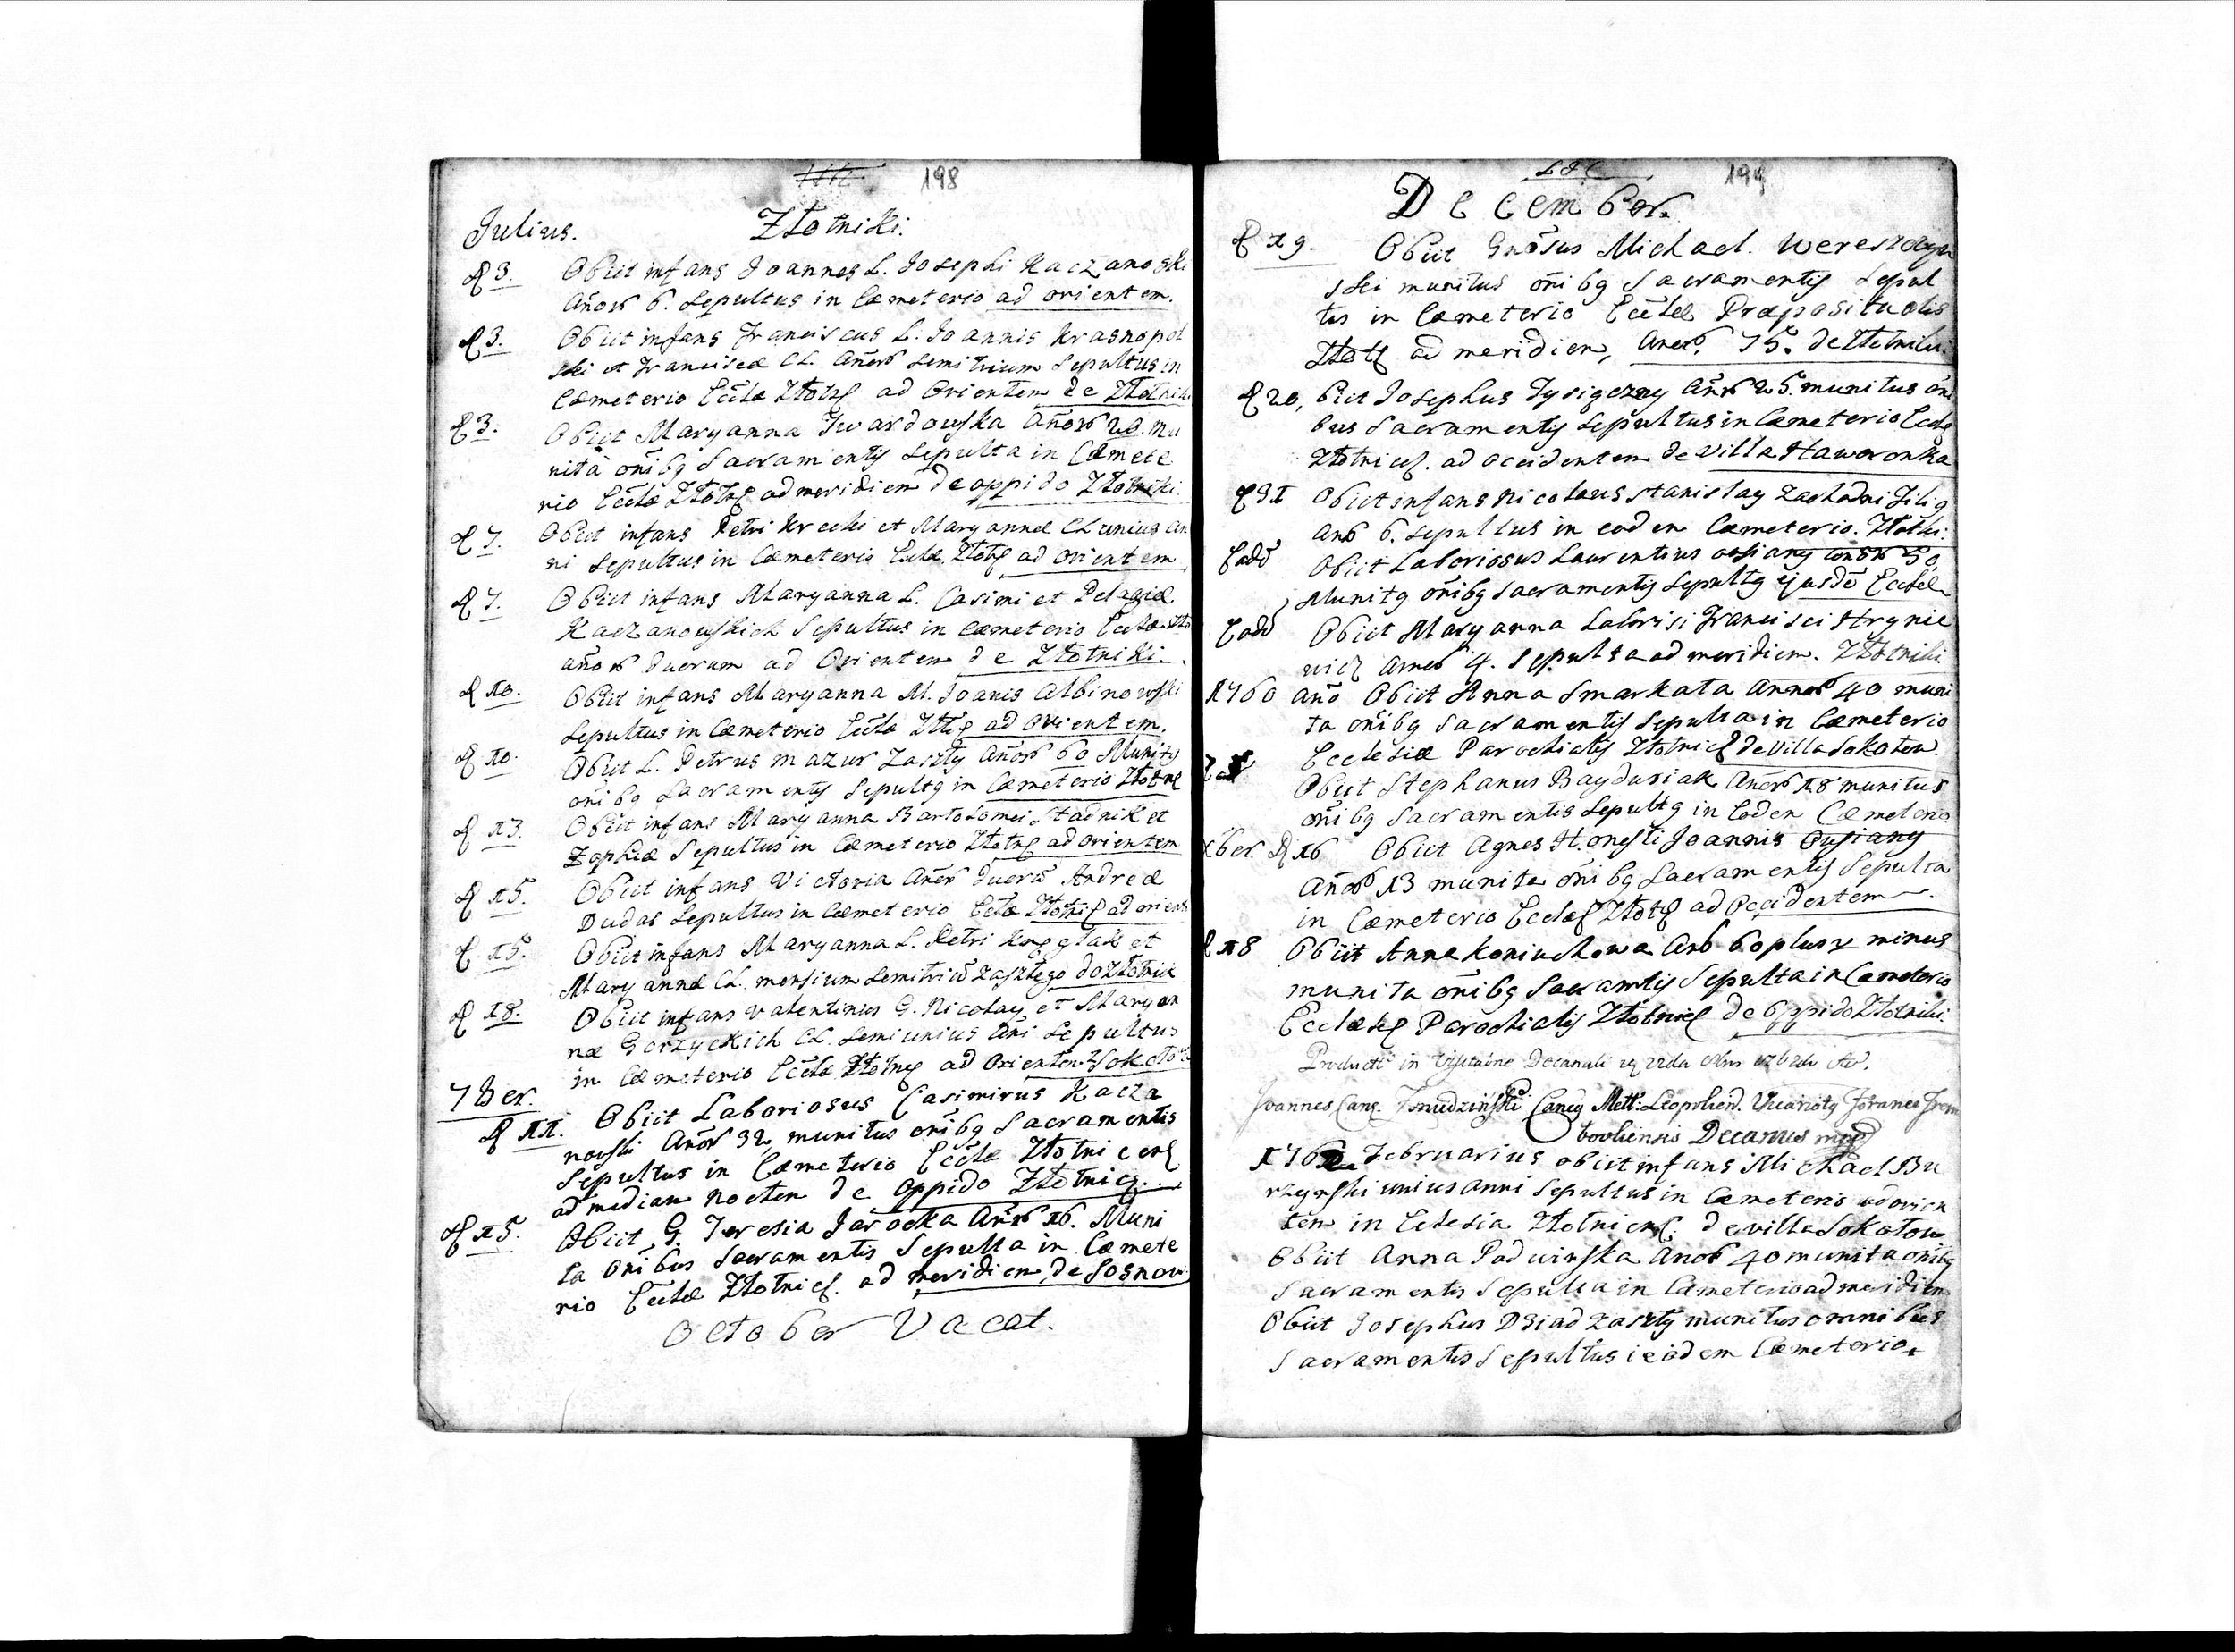 198
Julius. Złotniki.
d 3. Obiit infans Joannes L. Josephi Kaczanoski
Añor 6. Sepultus in Cœmeterio ad orientem.
d 3. Obiit infans Franciscus L. Joannis Krasnopol
ski et Franciscæ CL. Añor semitrium Sepultus in
Cœmeterio Eccłæ Złotn ad Orientem de Złotniki
d 3. Obiit Maryanna Twardowska Añor 20. mu
nita oñibq Sacramentis Sepulta in Cœmete
rio Eccłæ Złotn ad meridiem de oppido Złotniki.
d 7. Obiit infans Petri Krecki et Maryannæ CL unius an
ni Sepultus in Cœmeterio Eccłæ Złotn ad orientem
d 7. Obiit infans Maryanna L. Casimi et Pelagiæ
Kaczanowskich Sepultus in cœmeterio Eccłæ Zło
añor duorum ad Orientem de Złotniki.
d 10. Obiit infans Maryanna M. Joanis Albinowski
Sepultus in Cœmeterio Eccłæ Złt ad orientem.
d 10. Obiit L. Petrus Mazur Zaszły Añor 60 Munitq
oñibq Sacramentis Sepultq in Cœmeterio Złotne
d 13. Obiit infans Maryanna Bartolomei Stadnik et
Zophiæ Sepultus in Cœmeterio Złotn ad orientem
d 15. Obiit infans Victoria Añor duorũ Andreæ
Dudas Sepultus in Cœmeterio Eccłæ Złotnic ad orient
d 15. Obiit infans Maryanna L. Petri et
Maryannæ CL. mensium semitriũ zaszłego do Złotnik
d 18. Obiit infans Valentinus G. Nicolay et Maryan
næ Gorzyckich CL. semiunius Añi Sepultus
in Cœmeterio Eccłæ Złotn ad Orientem z Sokoło
7Ber.
d 11. Obiit Laboriosus Casimirus Kacza
nowski Añor 32, munitus oñibq Sacramentis
Sepultus in Cœmeterio Eccłæ Złotnicens
ad mediam noctem de Oppido Złotnic.
d 15. Obiit G. Teresia Jarocka Añor 16. Muni
ta oñibus Sacramentis Sepulta in Cœmete
rio Eccłæ Złotnic. ad meridiem de Sosnow
October Vacat.
199
December.
d 19. Obiit Gnõsus Michael Wereszczyn
ski munitus oñibq Sacramentis Sepul
tus in Cœmeterio Eccłæ Præpositualis
Złotn ad meridiem, Anor. 75. de Złotniki.
d 20, biit Josephus Tysigczny Añor 25. munitus oñi
bus Sacramentis Sepultus in Cœmeterio Eccłe
Złotnic. ad occidentem de villa Haworonka
d 31 Obiit infans Nicolaus Stanislay Zachodni Filiq
Anõ 6. Sepultus in eodem Cœmeterio. Złotki.
Eadē Obiit Laboriosus Laurentius añor 50.
Munitq oñibq Sacramentis Sepultq ejusdē Eccłæ
Eadē Obiit Maryanna Laborisi Francisci Hrynie
wicz Anor 4. Sepulta ad meridiem. Złotniki
1760 año Obiit Anna Smarkata Annor 40 muni
ta oñibq Sacramentis Sepulta in Cœmeterio
Ecclesiæ Parochialis Złotnic de villa Sokołow.
Obiit Stephanus Baydusiak Añor 18 munitus
oñibq Sacramentis Sepultq in Eodem Cœmeterio
Xber. d 16 Obiit Agnes Honesti Joannis
Añor 13 munita oñibq Sacramentis Sepulta
in Cœmeterio Eccłæ Złotn ad Occidentem.
d 18 Obiit Anna Koniuchowa Anõ 60 plus v minus
munita oñibq Sacramtis Sepulta in Cæmeterio
Eccłæ Parochialis Złotnic de Oppido Złotniki.
in Decanali
Joannes Canc. Żmudziński Metr: Leopolien. Foraneq Trem
bovliensis Decanus mpp
Februarius obiit infans Michael Bu
rzynski unius anni Sepultus in Cœmeterio ad orien
tem in Eclesia Złotnicens. de villa Sokołow
Obiit Anna Padwinska Anor 40 munita oñibq
Sacramentis Sepulta in Cæmeterio ad meridiem
Obiit Josephus Dziad zaszły munitus omnibus
Sacramentis Sepultus i eodem Cœmeterio.